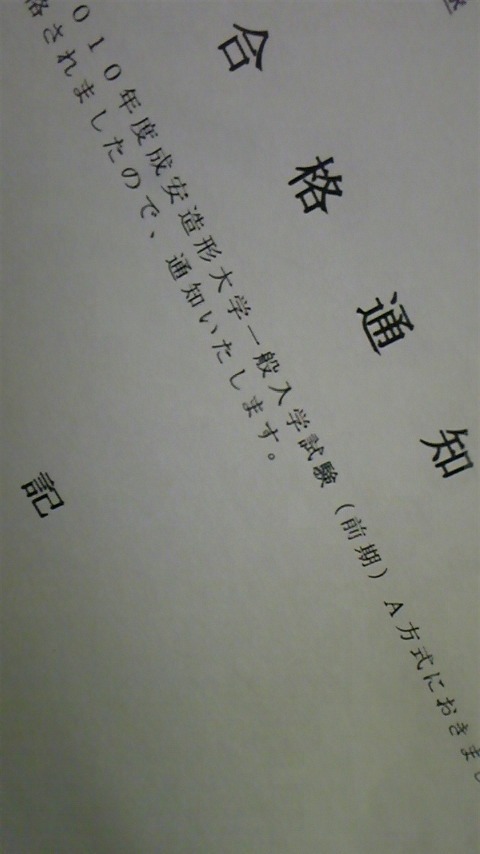 合格通知
010年度成安造形大学一般入学試験（前期）A方式におきまし
格されましたので、通知いたします。
記